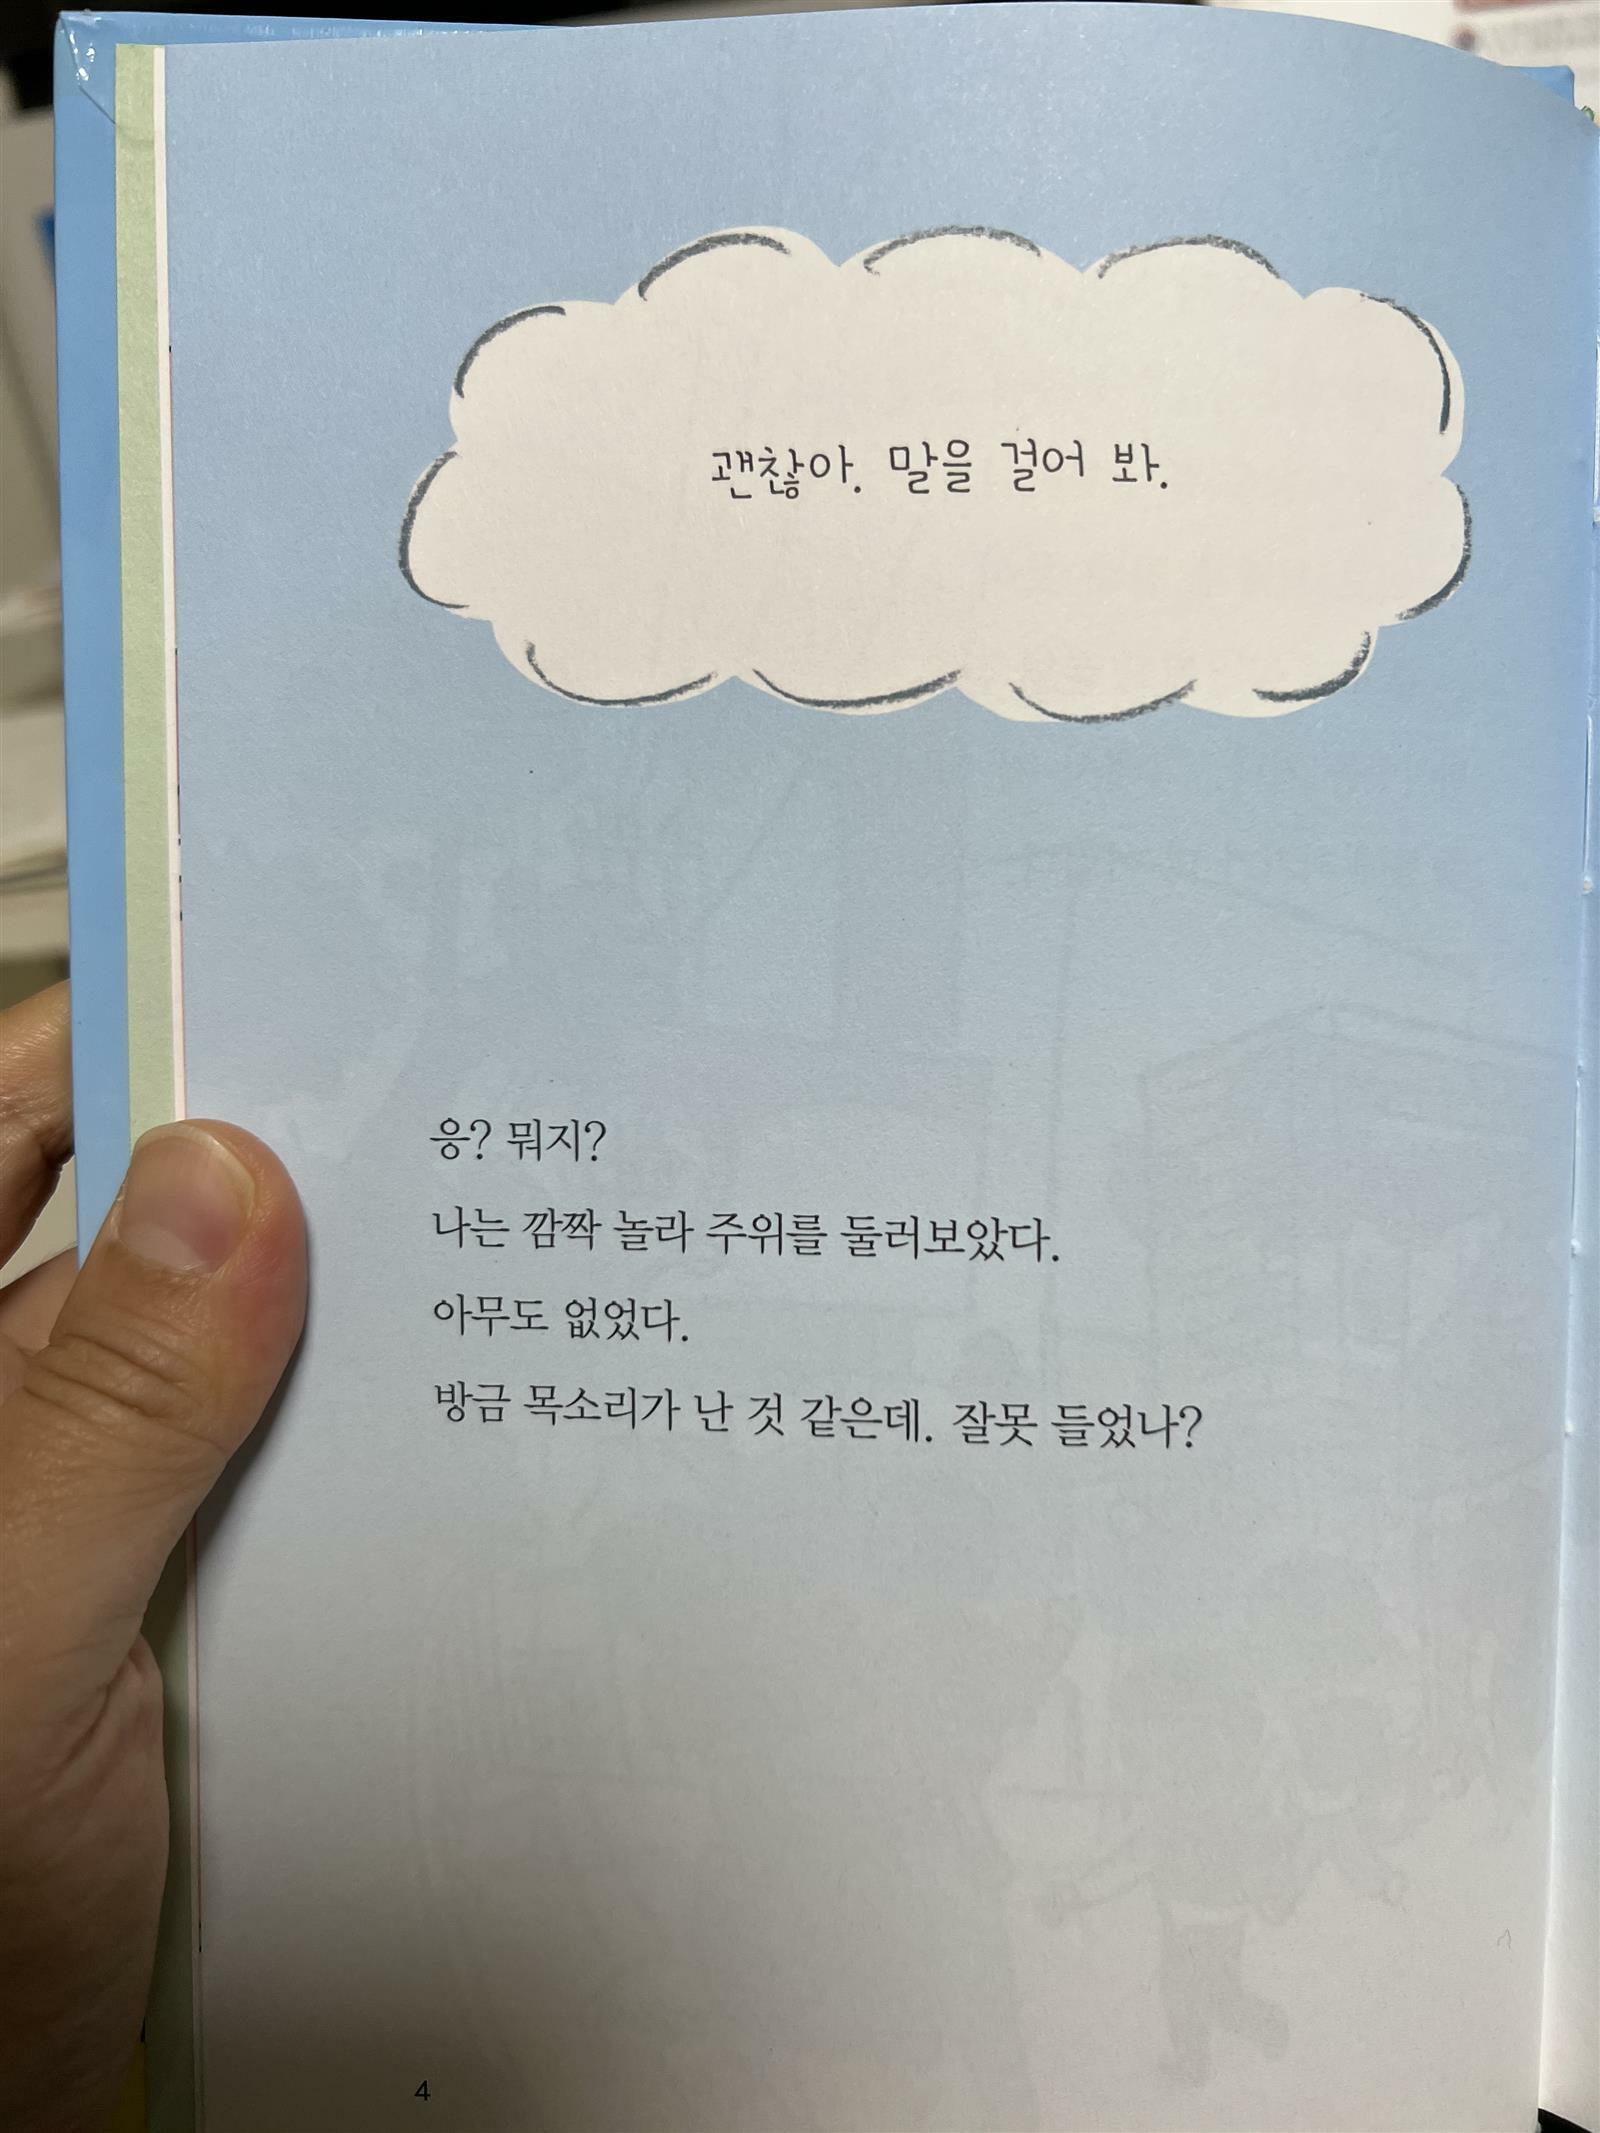 괜찮아. 말을 걸어 봐.
응? 뭐지?
나는 깜짝 놀라 주위를 둘러보았다.
아무도 없었다.
방금 목소리가 난 것 같은데. 잘못 들었나?
4